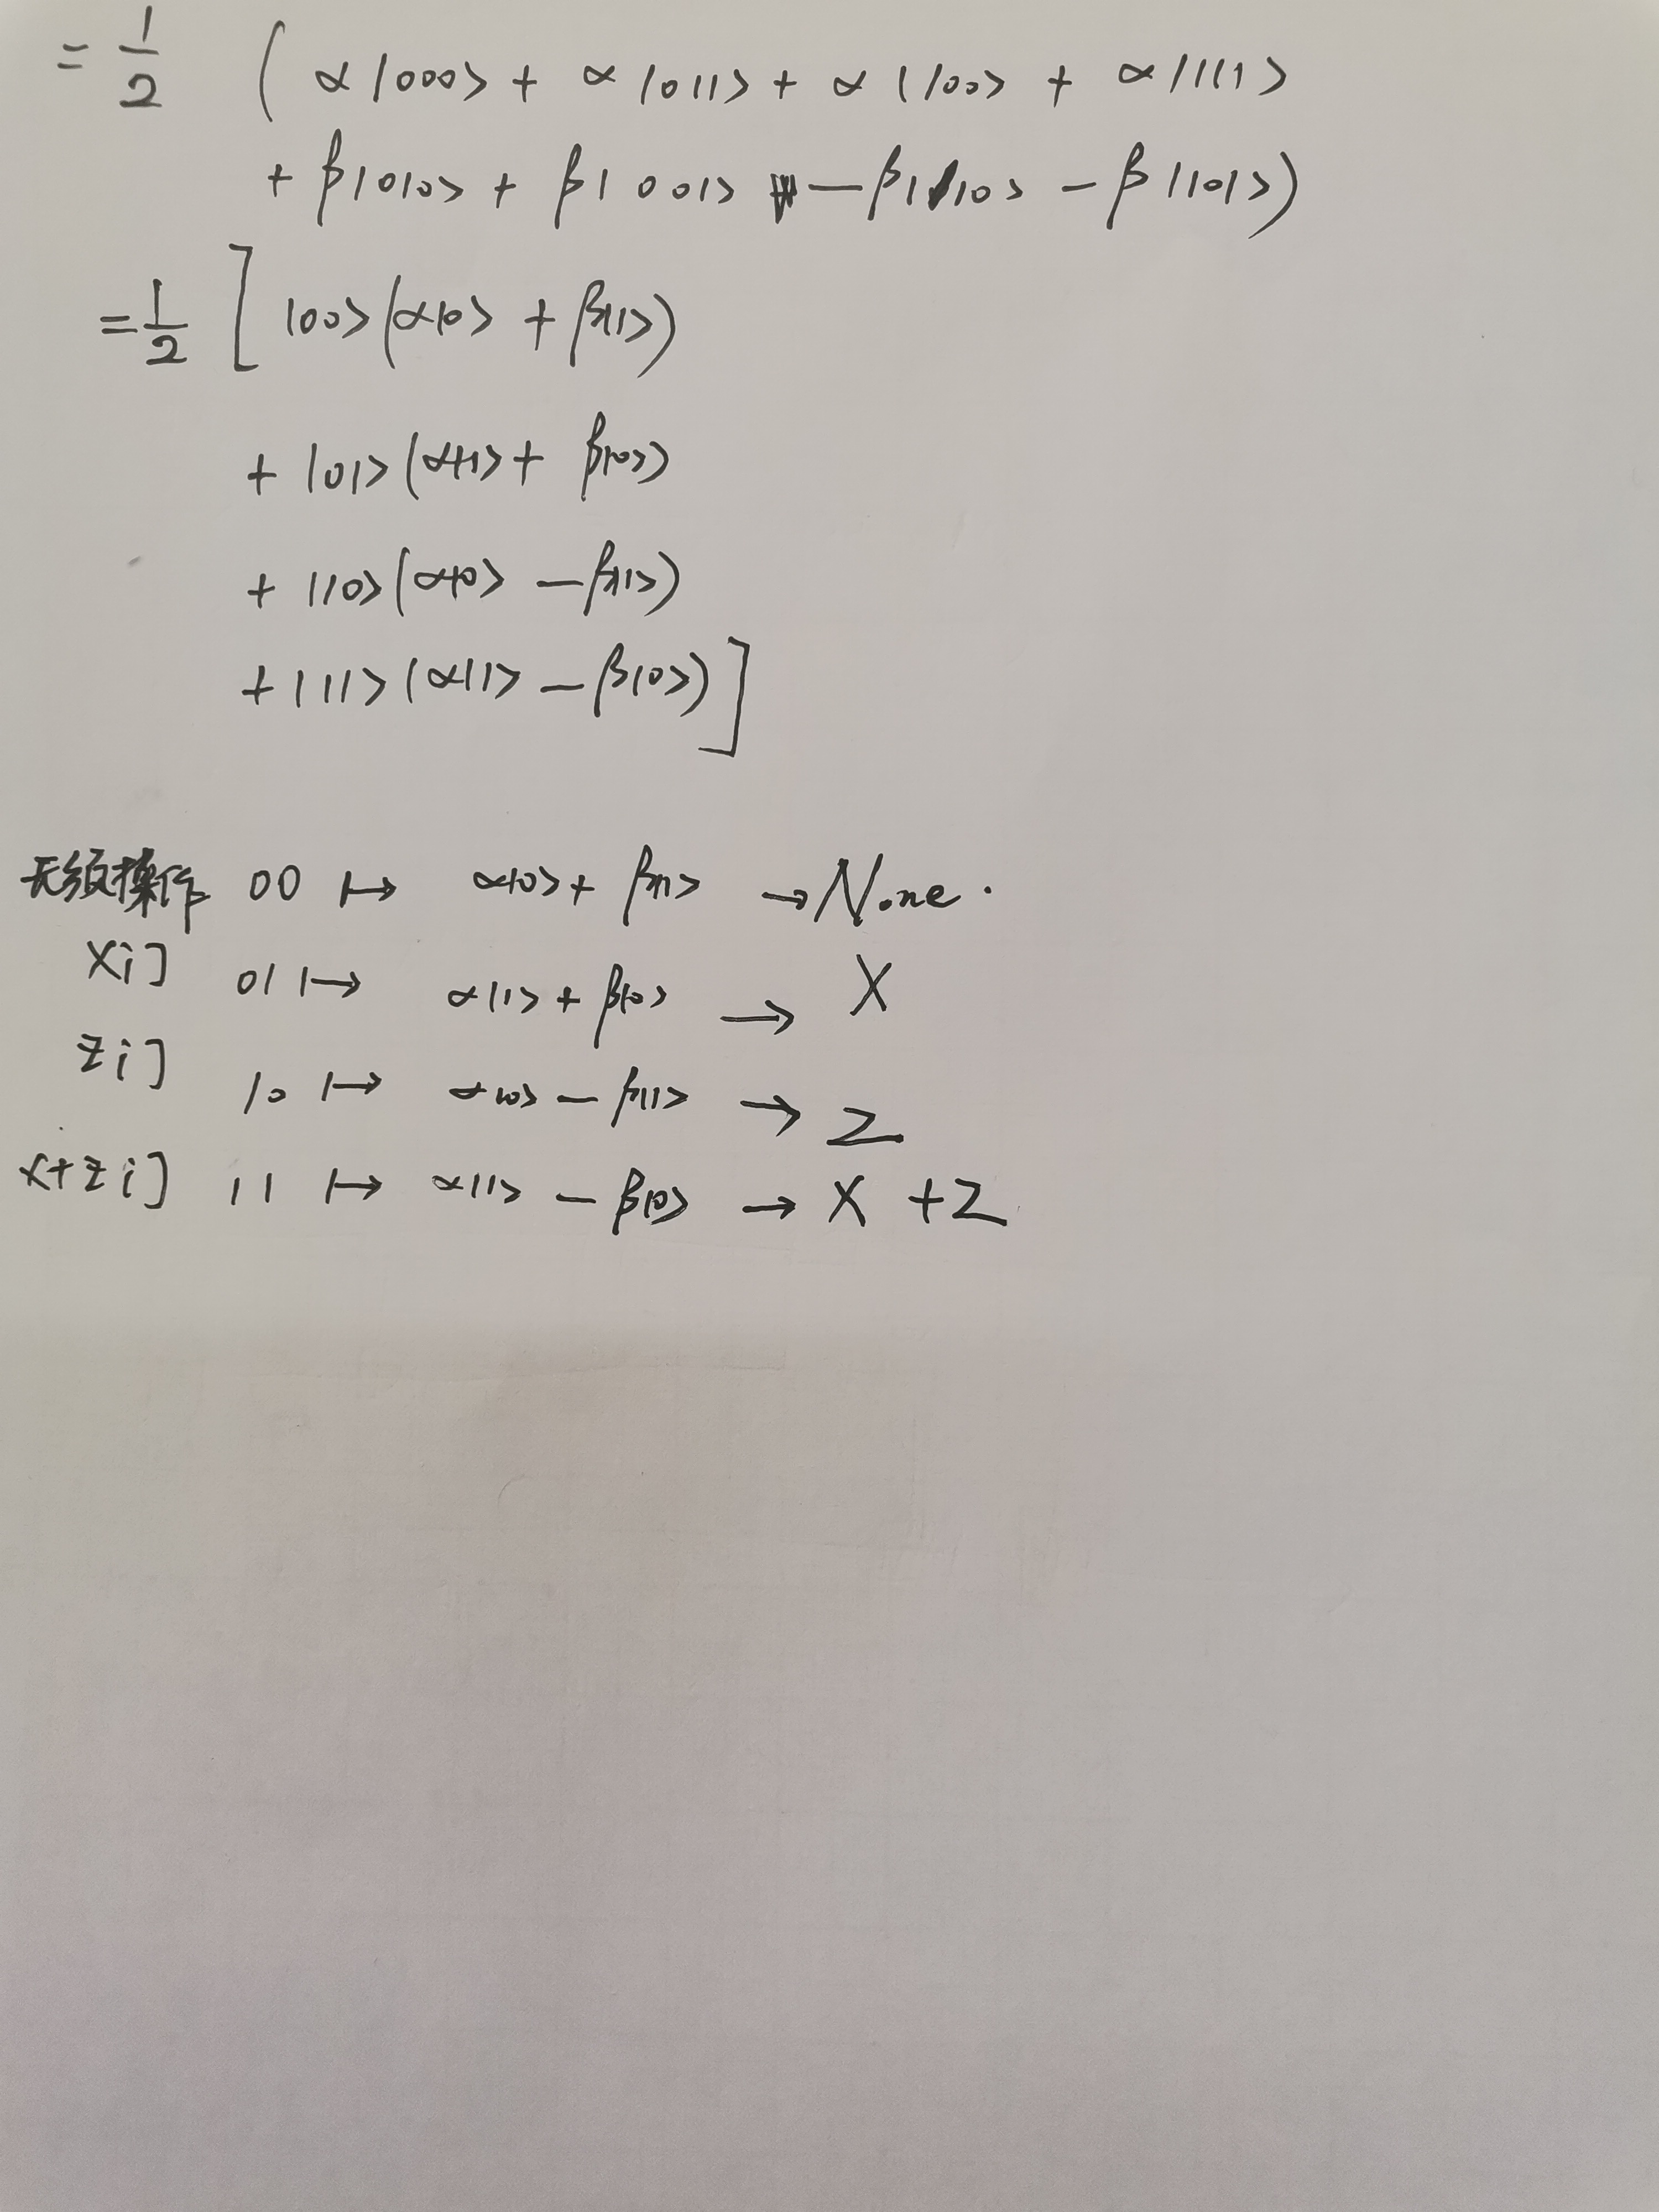 = 1/2 ( α|000> + α|011> + α|100> + α|111>
+ β|010> + β|001> - β|110> - β|101>)
= 1/2 [ |00>(α|0> + β|1>)
+ |01>(α|1> + β|0>)
+ |10>(α|0> - β|1>)
+ |11>(α|1> - β|0>)]
无须操作 00 ↦ α|0> + β|1> → None.
X门 01 ↦ α|1> + β|0> → X
Z门 10 ↦ α|0> - β|1> → Z
X+Z门 11 ↦ α|1> - β|0> → X + Z